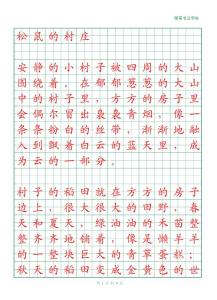 松鼠的村庄
安静的小村子被四周的大山
围绕着。在郁郁葱葱的大山
中的村子里，方方的房子里
会偶尔冒出袅袅青烟，像一
条条粉白的丝带，渐渐地融
入到飘着白云的蓝天里，成
为云的一部分。
村子的稻田就在方方的房子
边上，很大很大的田野，春
天和夏天，绿油油的禾苗整
整齐齐地铺着，像是懒羊羊
的一块块巨大的青草蛋糕；
秋天的稻田变成金黄色的世